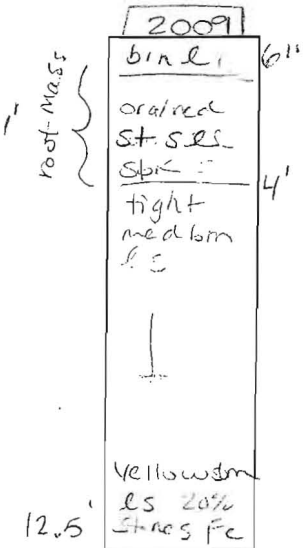 2009
bin l. 6"
1' root-mass
orained
st. sls
4'
tight
med brn
ls
yellowbrn
ls 20%
12.5' stones Fc